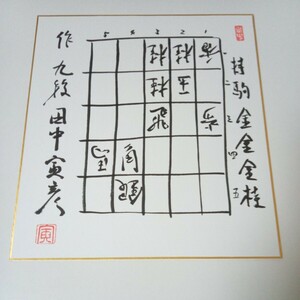 持駒 金金金桂
一
二
三
四
五
5 4 3 2 1
桂 桂 香
桂 玉
飛
作 九段 田中寅彦
寅